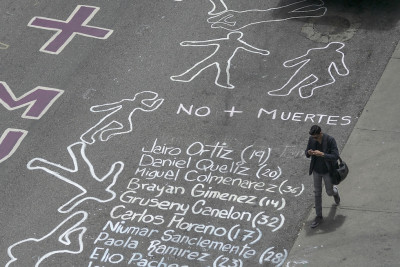 M
NO + MUERTES
Jeiro Ortiz (19)
Daniel Queliz (20)
Miguel Colmenarez (36)
Brayan Gimenez (14)
Gruseny Canelon (32)
Carlos Moreno (17)
Niumar Sanclemente (28)
Paola Ramirez (23)
Elio Pacheco